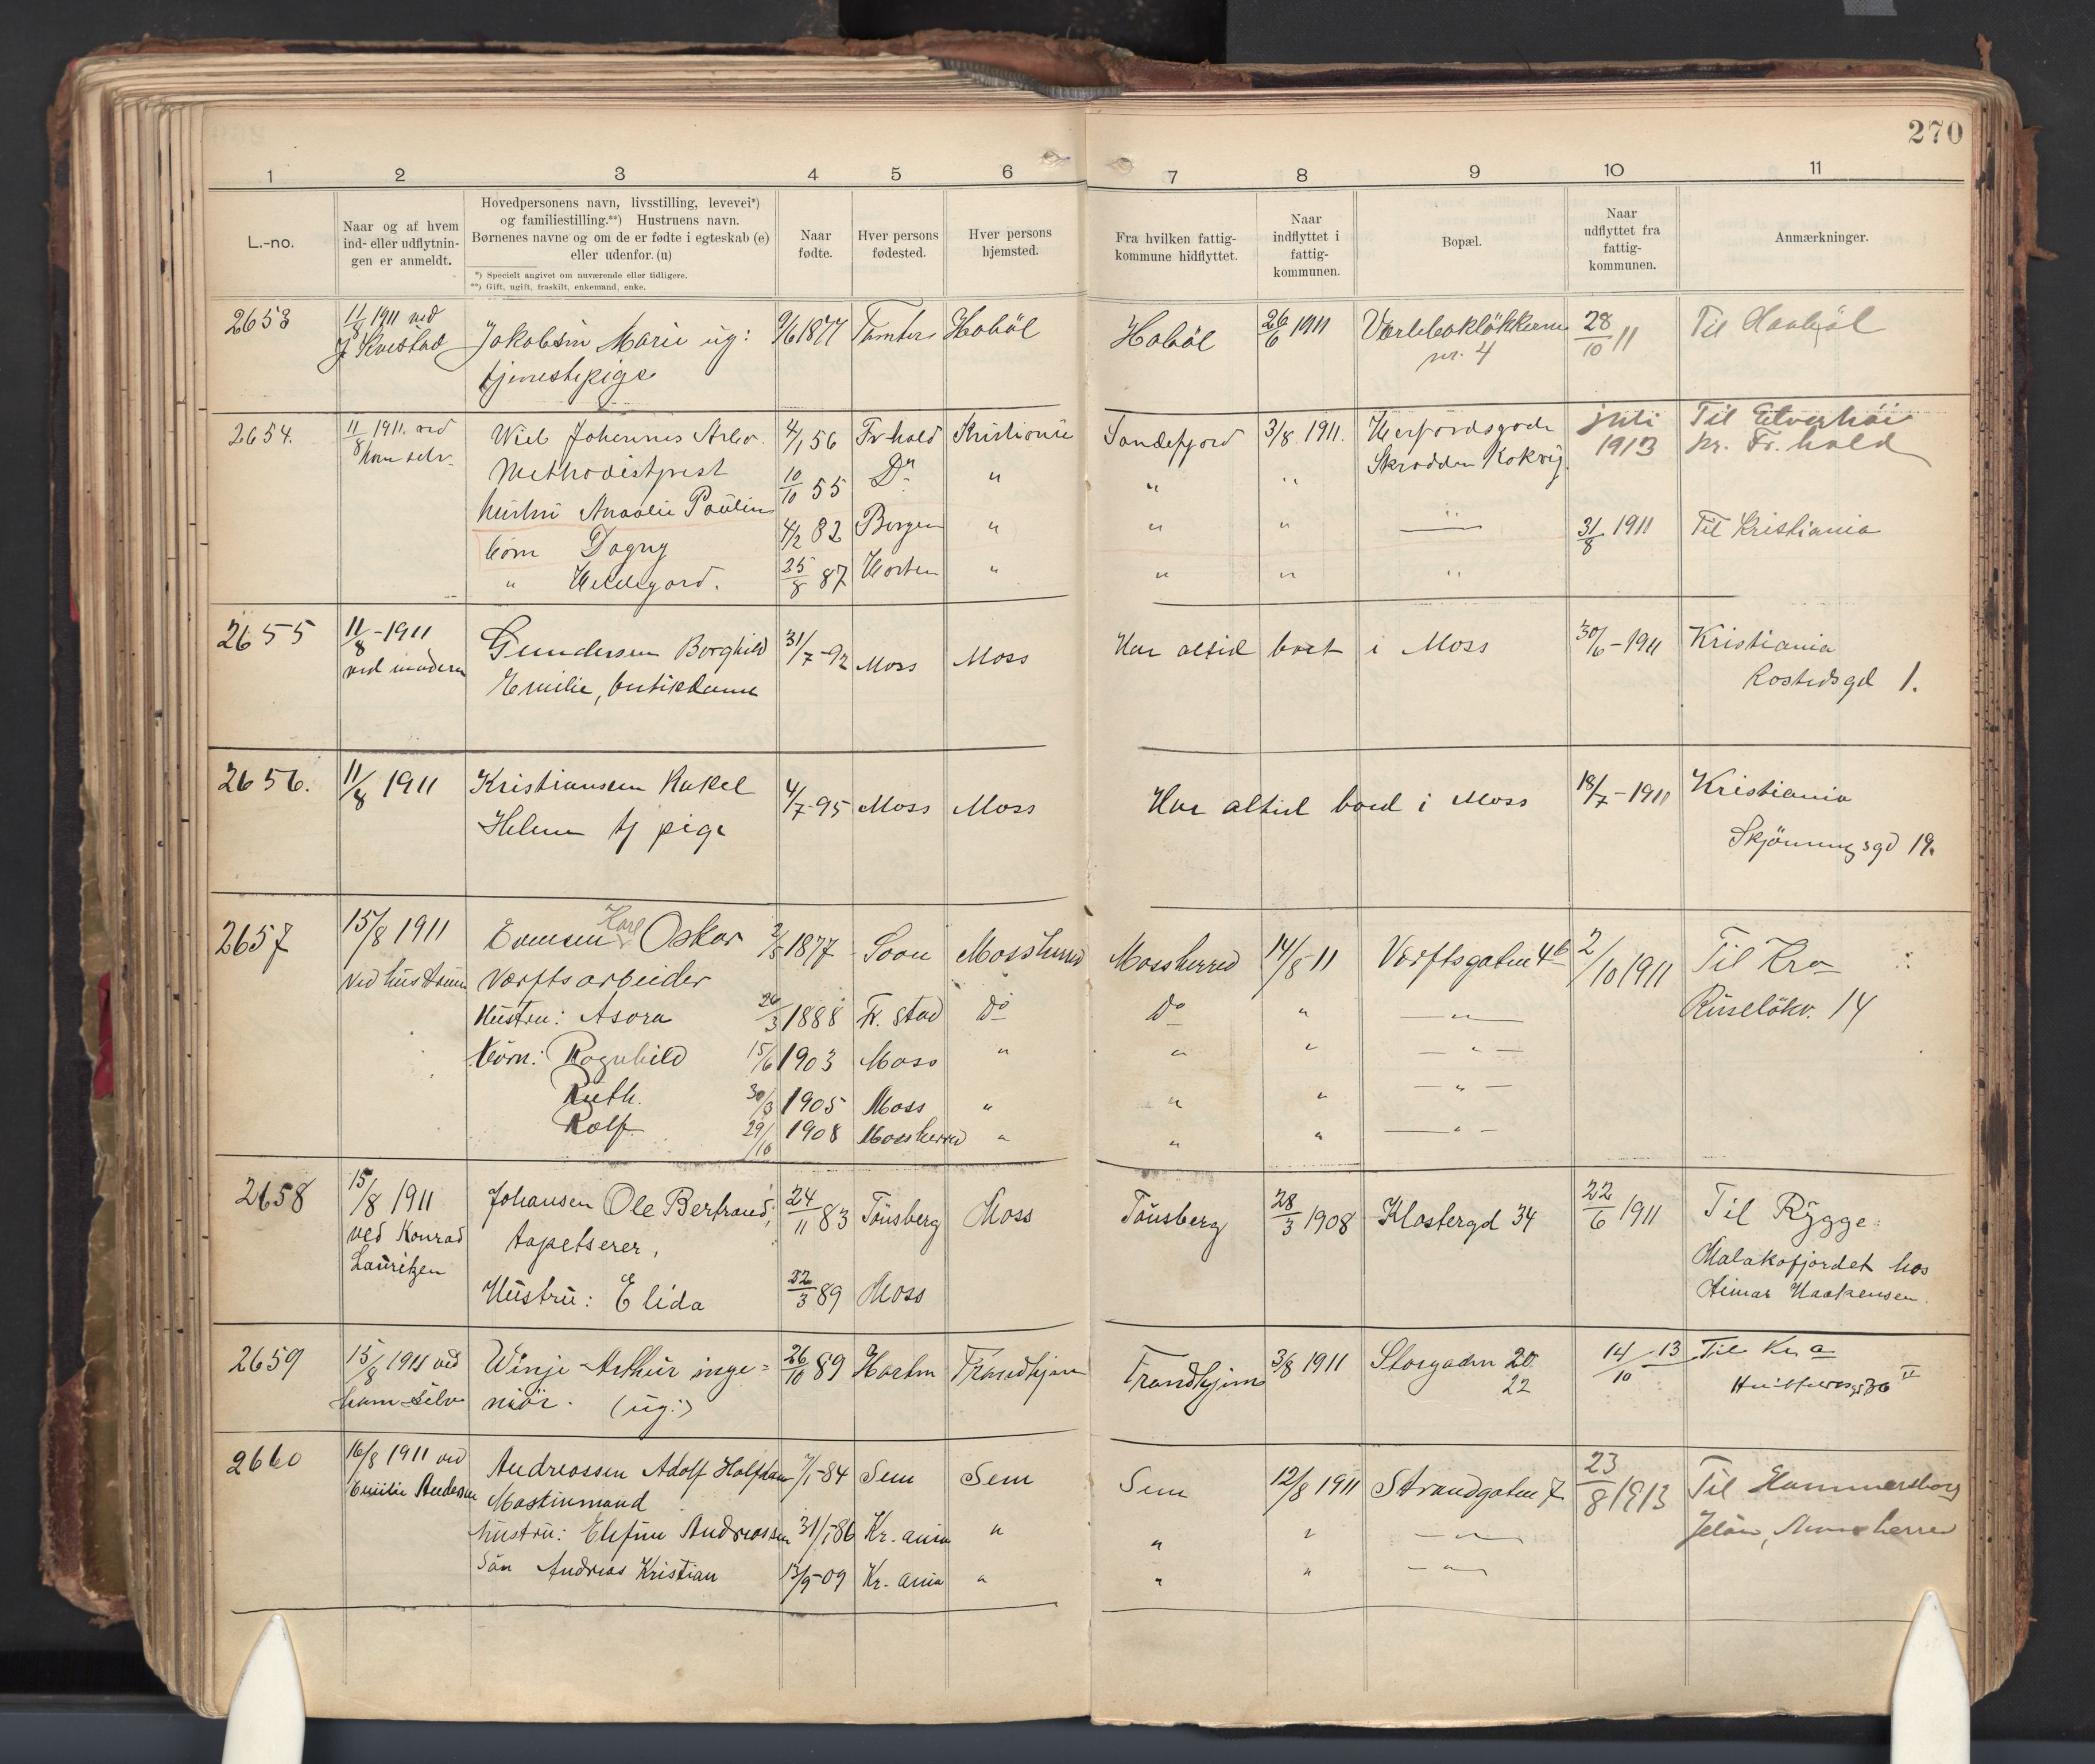 270
1 2 3 4 5 6 7 8 9 10 11
L.-no.
Naar og af hvem
ind- eller udflytnin-
gen er anmeldt.
Hovedpersonens navn, livsstilling, levevei*)
og familiestilling.**) Hustruens navn.
Børnenes navne og om de er fødte i egteskab (e)
eller udenfor. (u)
*) Specielt angivet om nuværende eller tidligere.
**) Gift, ugift, fraskilt, enkemand, enke.
Naar
fødte.
Hver persons
fødested.
Hver persons
hjemsted.
Fra hvilken fattig-
kommune hidflyttet.
Naar
indflyttet i
fattig-
kommunen.
Bopæl.
Naar
udflyttet fra
fattig-
kommunen.
Anmærkninger.
2653 11/8 1911 ved Jakobsen Marie ug: 9/6 1877 Hobøl Hobøl 26/6 1911 28/10 11 Til Haabøl
J Kvestad tjenestepige nr. 4
2654. 11/8 1911. ved Johannes 4/1 56 Fr hald Kristiania Sandefjord 3/8 1911. juli Til
ham selv. Methodistpræst 10/10 55 Do " " " 1913 pr. Fr. hald
hustru Pauline
børn Dagny 4/2 82 Bergen " " " " 31/8 1911 Til Kristiania
" 25/8 87 Horten " " " "
2655 11/8 - 1911 Gundersen Borghild 31/7 - 92 Moss Moss Har altid boet i Moss 30/6 - 1911 Kristiania
ved moderen Emilie, butikdame 1.
2656. 11/8 1911 Kristiansen Rakel 4/7 - 95 Moss Moss Har altid boed i Moss 18/7 - 1911 Kristiania
Helene tj pige 19.
2657 15/8 1911 Karl Oskar 2/5 1877 Soon Mossherred Mossherred 14/8 11 Værftsgaten 4b 2/10 1911 Til Kra
ved hustruen Værftsarbeider 14
Hustru: Asora 26/3 1888 Fr. stad Do Do " — " —
børn: Ragnhild 15/6 1903 Moss " " " — " —
Ruth. 30/3 1905 Moss " " " — " —
Rolf. 29/10 1908 Mossherred " " " — " —
2658 15/8 1911 Johansen Ole Bertrand, 24/11 83 Tønsberg Moss Tønsberg 28/3 1908 Klostergd 34 22/6 1911 Til Rygge:
ved Konrad tapetserer, Malakofjordet hos
Lauritzen Hustru: Elida 22/3 89 Moss Haakensen.
2659 15/8 1911 ved Winje Arthur inge= 26/10 89 Trondhjem Trondhjem 3/8 1911 Storgaden 20 14/10 13 Til Kr a
ham selv niør. (ug:) 22 36 II
2660 16/8 1911 ved Andreassen Adolf Halfdan 84 Sem Sem Sem 12/8 1911 Strandgaten 7 23/8 1913 Til Hammersborg
Emilie Andersen Maskinmand
hustru: Andreassen 31/1 - 86 Kr. ania " " " — " — Jeløen,
Søn Andreas Kristian 13/9 - 09 Kr. ania " " " — " —